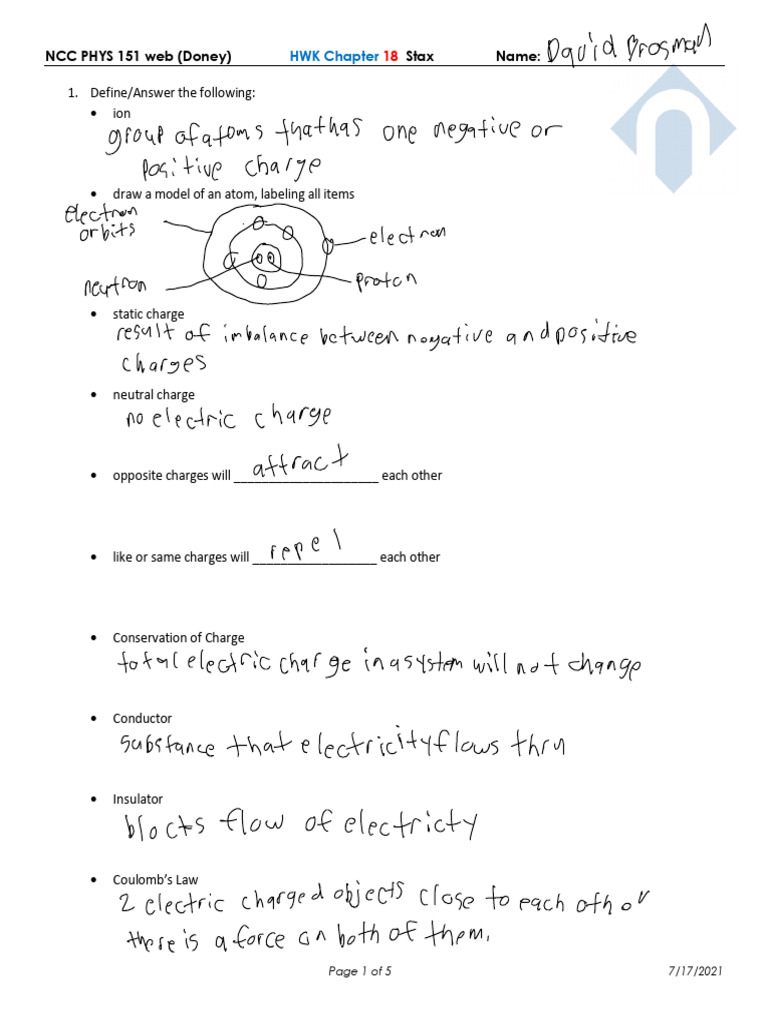 NCC PHYS 151 web (Doney) HWK Chapter 18 Stax Name: David Brosman
1. Define/Answer the following:
• ion
group of atoms that has one negative or
positive charge
• draw a model of an atom, labeling all items
electron
orbits
electron
neutron
proton
• static charge
result of imbalance between negative and positive
charges
• neutral charge
no electric charge
• opposite charges will attract each other
• like or same charges will repel each other
• Conservation of Charge
total electric charge in a system will not change
• Conductor
substance that electricity flows thru
• Insulator
blocts flow of electricty
• Coulomb's Law
2 electric charged objects close to each other
there is a force on both of them.
Page 1 of 5 7/17/2021